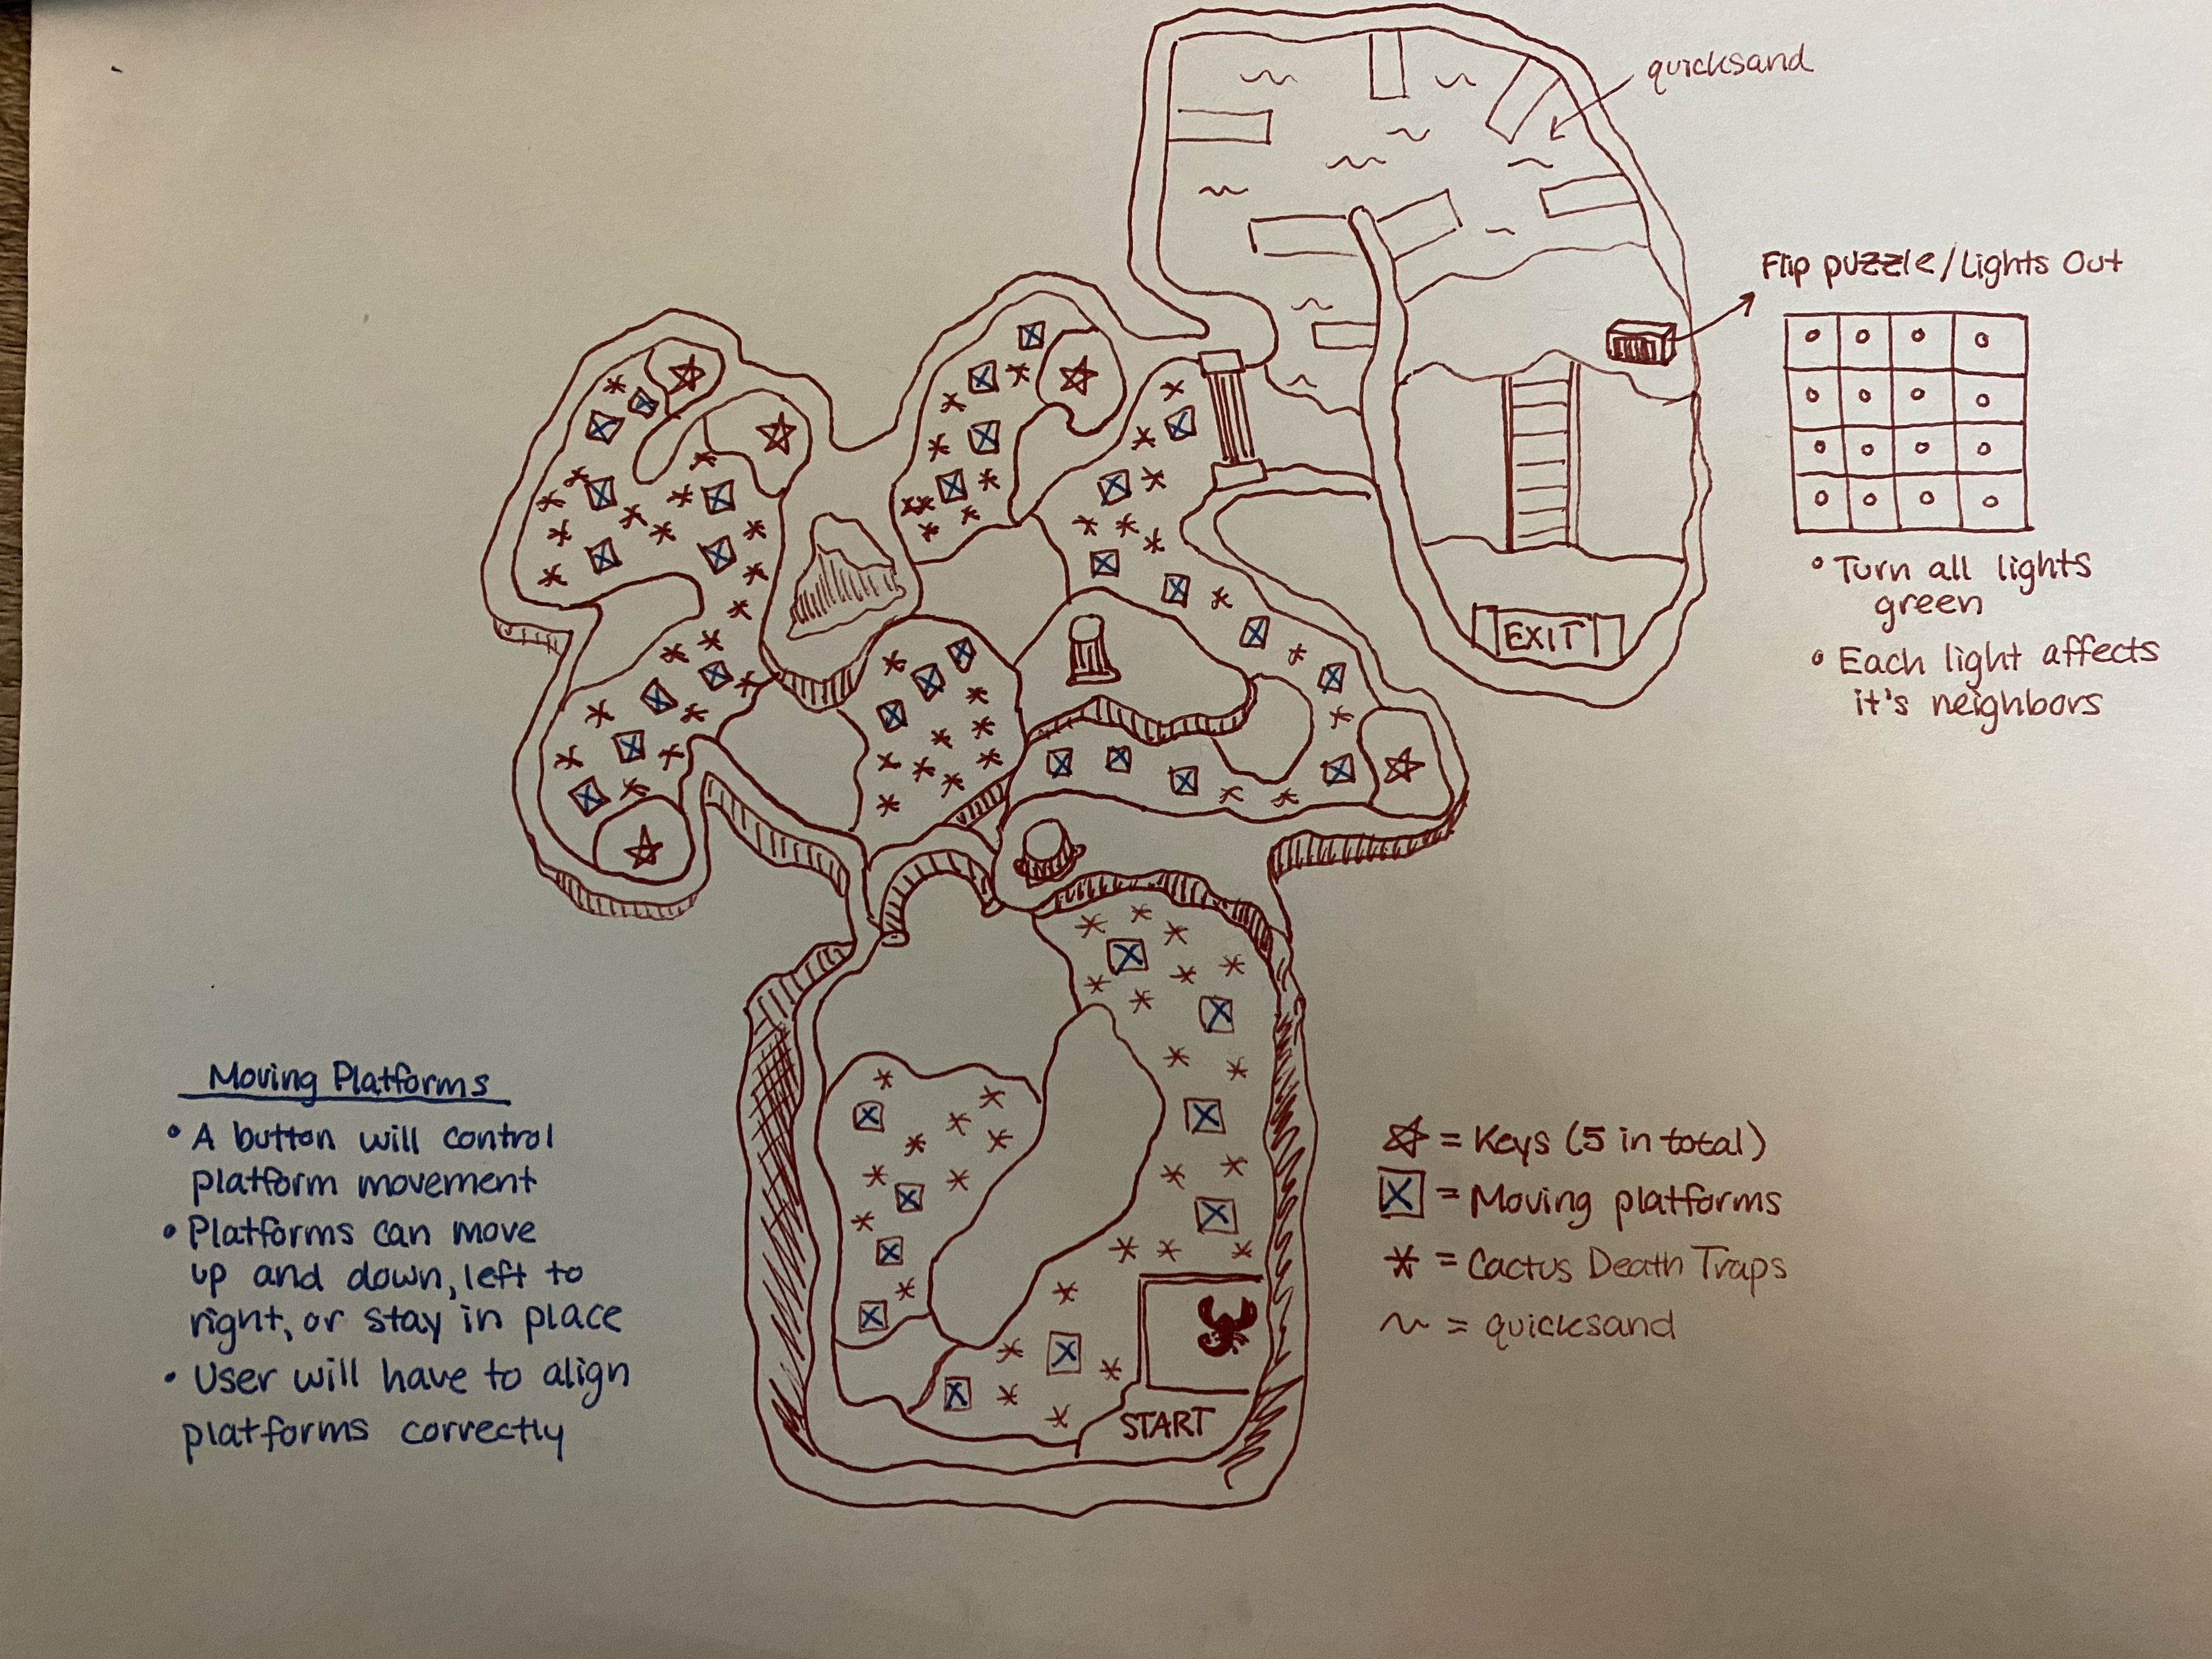 quicksand
Flip puzzle/Lights Out
• Turn all lights
green
• Each light affects
it's neighbors
EXIT
Moving Platforms
• A button will control
platform movement
• Platforms can move
up and down, left to
right, or stay in place
• User will have to align
platforms correctly
= Keys (5 in total)
= Moving platforms
= Cactus Death Traps
= quicksand
START